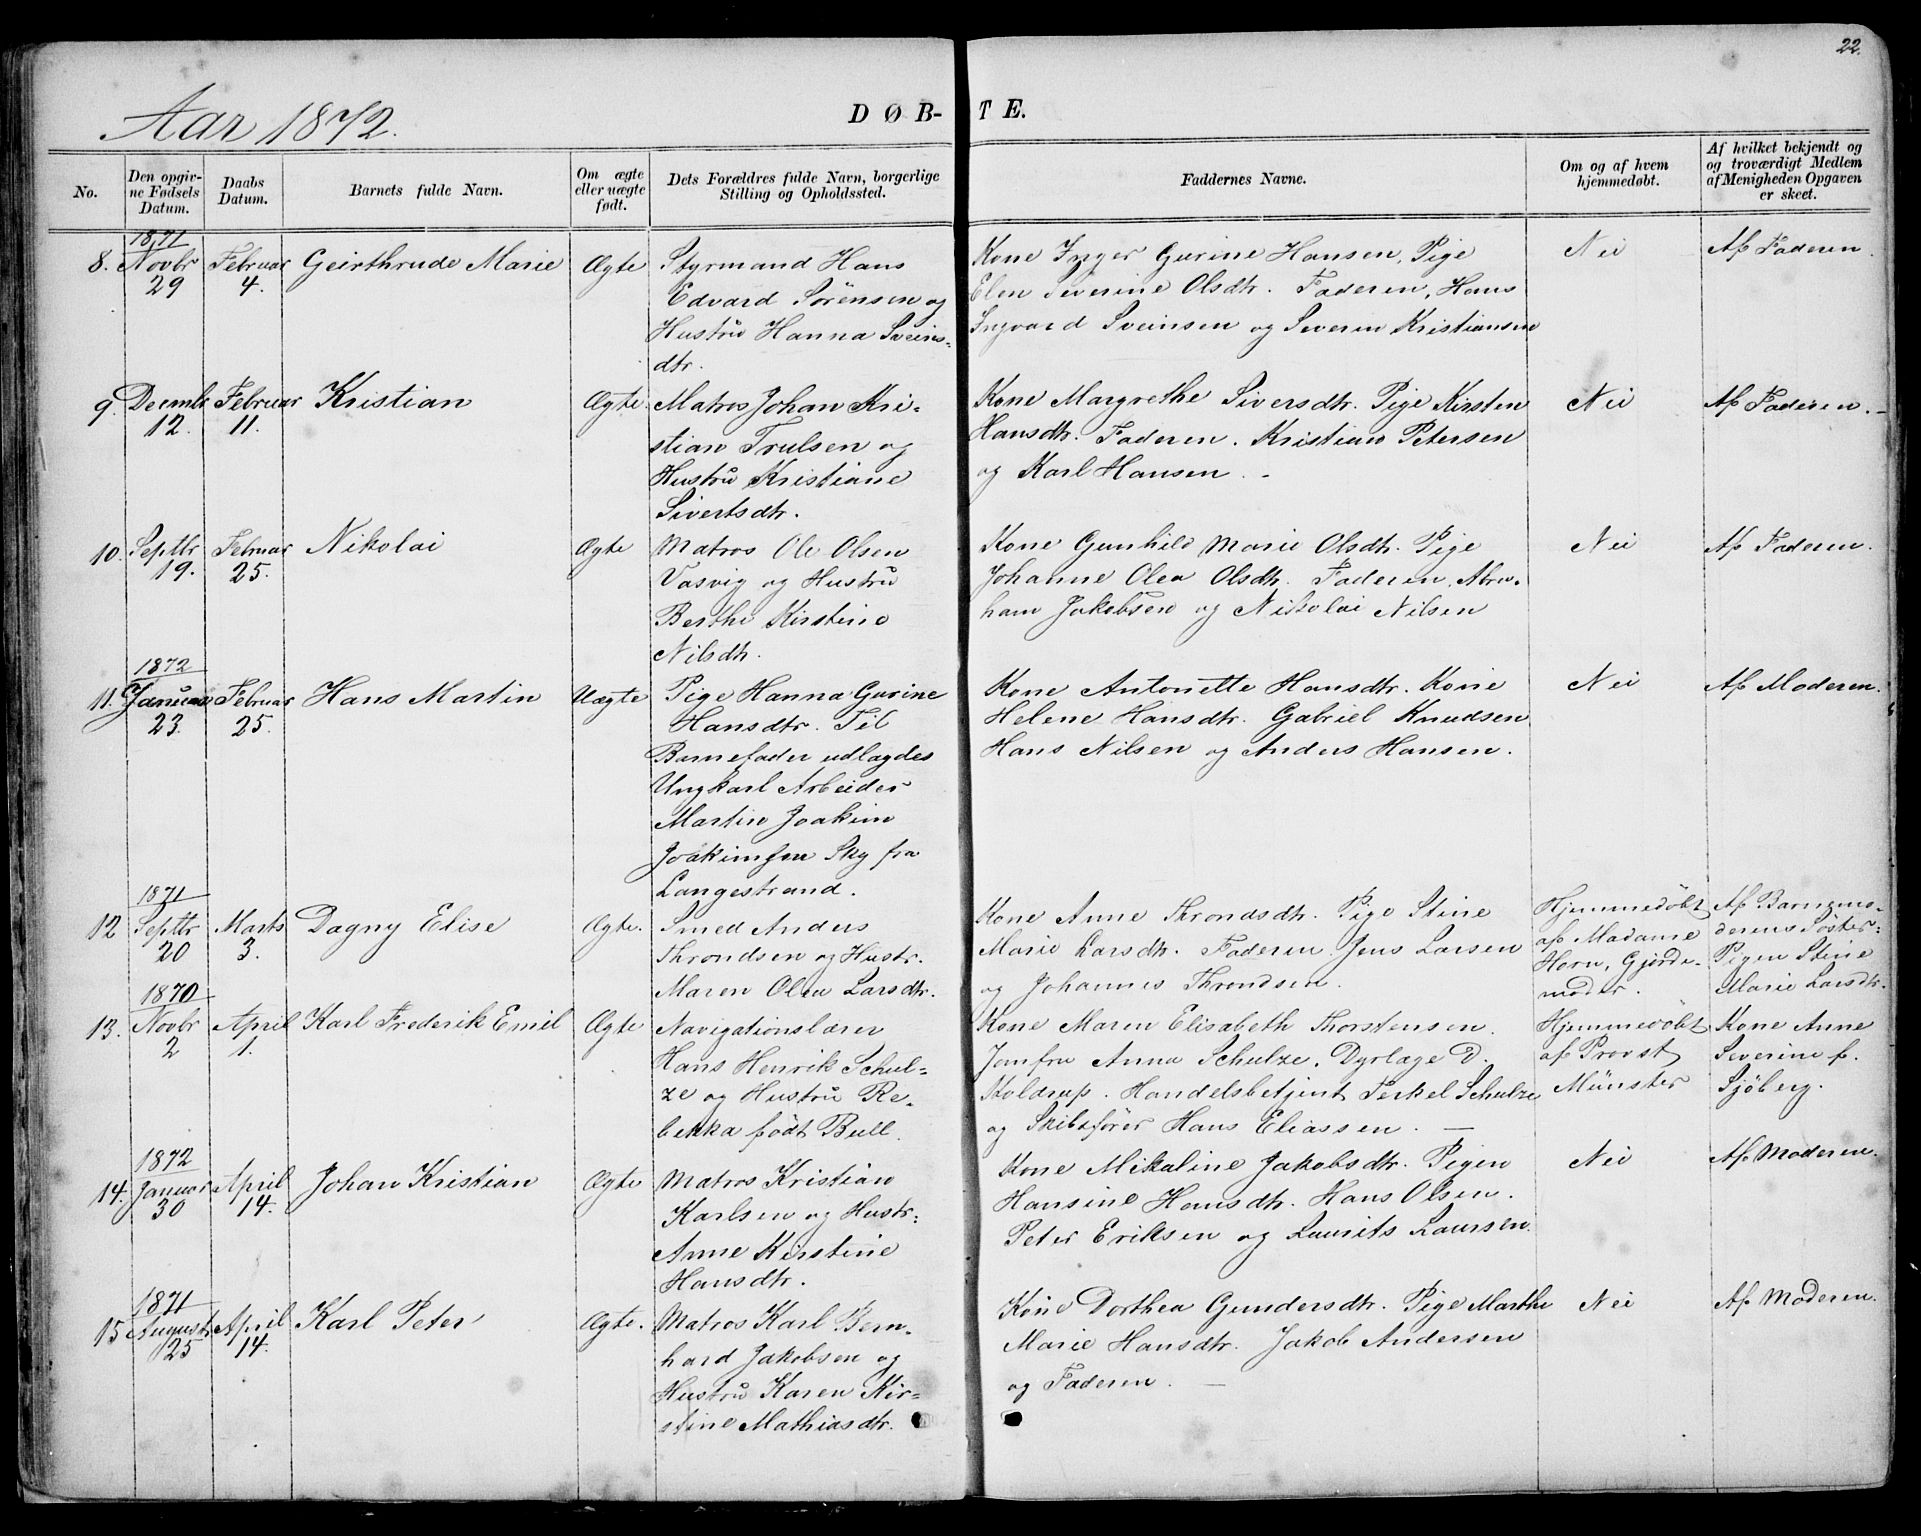 22.
Aar 1872.
DØB-TE.
No.
Den opgiv-
ne Fødsels
Datum.
Daabs
Datum.
Barnets fulde Navn.
Om ægte
eller uægte
født.
Dets Forældres fulde Navn, borgerlige
Stilling og Opholdssted.
Faddernes Navne.
Om og af hvem
hjemmedøbt.
Af hvilket bekjendt og
og troværdigt Medlem
af Menigheden Opgaven
er skeet.
8.
1871
Novbr
29
Februar
4.
Geirthrude Marie
Ægte
Styrmand Hans
Edvard Sörensen og
Hustrü Hanna Sveins-
dtr.
Kone Inger Gurine Hansen, Pige
Elen Severine Olsdtr. Faderen, Hans
Ingvard Sveinsen og Severin Kristiansen
Nei
Af Faderen.
9.
Decmbr
12.
Februar
11.
Kristian
Ægte.
Matros Johan Kri-
stian Trulsen og
Hustrü Kristiane
Sivertsdtr.
Kone Margrethe Siversdtr. Pige Kirsten
Hansdtr. Faderen. Kristian Petersen
og Karl Hansen. -
Nei
Af Faderen. -
10.
Septbr
19.
Februar
25.
Nikolai
Ægte
Matros Ole Olsen
Vasvig og Hustrü
Berthe Kirstine
Nilsdtr.
Kone Gunhild Marie Olsdtr. Pige
Johanne Olea Olsdtr. Faderen, Abra-
ham Jakobsen og Nikolai Nilsen
Nei
Af Faderen.
11.
1872
Januar
23.
Februar
25.
Hans Martin
Uægte
Pige Hanna Gurine
Hansdtr. Til
Barnefader udlagdes
Ungkarl Arbeider
Martin Joakim
Joakimsen Sky fra
Langestrand.
Kone Antonette Hansdtr. Kone
Helene Hansdtr. Gabriel Knudsen
Hans Nilsen og Anders Hansen.
Nei
Af Moderen.
12
1871
Septbr
20
Marts
3.
Dagny Elise
Ægte.
Smed Anders
Throndsen og Hustr.
Maren Olea Larsdtr.
Kone Anne Throndsdtr. Pige Stine
Marie Larsdtr. Faderen. Jens Larsen
og Johannes Throndsen.
Hjemmedöbt
af Madame
Horn, Gjorde-
moder.
Af Barnemo-
derens Söster:
Pigen Stine
Marie Larsdtr.
13.
1870
Novbr
2
April
1.
Karl Frederik Emil
Ægte
Navigationslærer
Hans Henrik Schul-
ze og Hustrü Re-
bekka födt Bull.
Kone Maren Elisabeth Thorstensen.
Jomfru Anna Schulze, Dyrlæge D.
Koldrup. Handelsbetjent Terkel Schulze
og Skibsförer Hans Eliassen. -
Hjemmedöbt
af Provst
Münster
Kone Anne
Severine f.
Sjöberg.
14.
1872
Januar
30
April
14.
Johan Kristian
Ægte
Matros Kristian
Karlsen og Hustr:
Anne Kirstine
Hansdtr.
Kone Mikaline Jakobsdtr. Pigen
Hansine Hansdtr. Hans Olsen.
Peter Eriksen og Laurits Laursen.
Nei
Af Moderen.
15
1871
August
25
April
14.
Karl Peter
Ægte.
Matros Karl Bern-
hard Jakobsen og
Hustrü Karen Kir-
stine Mathiasdtr.
Kone Dorthea Gundersdtr. Pige Marthe
Marie Hansdtr. Jakob Andersen
og Faderen. -
Nei
Af Moderen.